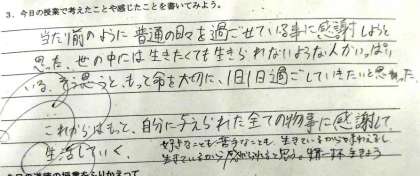 3. 今日の授業で考えたことや感じたことを書いてみよう。
当たり前のように普通の日々を過ごせている事に感謝しようと
思った。世の中には生きたくても生きられないような人がいっぱい
いる。そう思うと、もって命を大切に、1日1日過ごしていきたいと思った。
これからはもって、自分に与えられた全ての物事に感謝して
生活していく。
好きなことも苦手なことも、生きているから
生きているから感じられると思う。精一杯生きよう
の道徳の授業をふりかえって